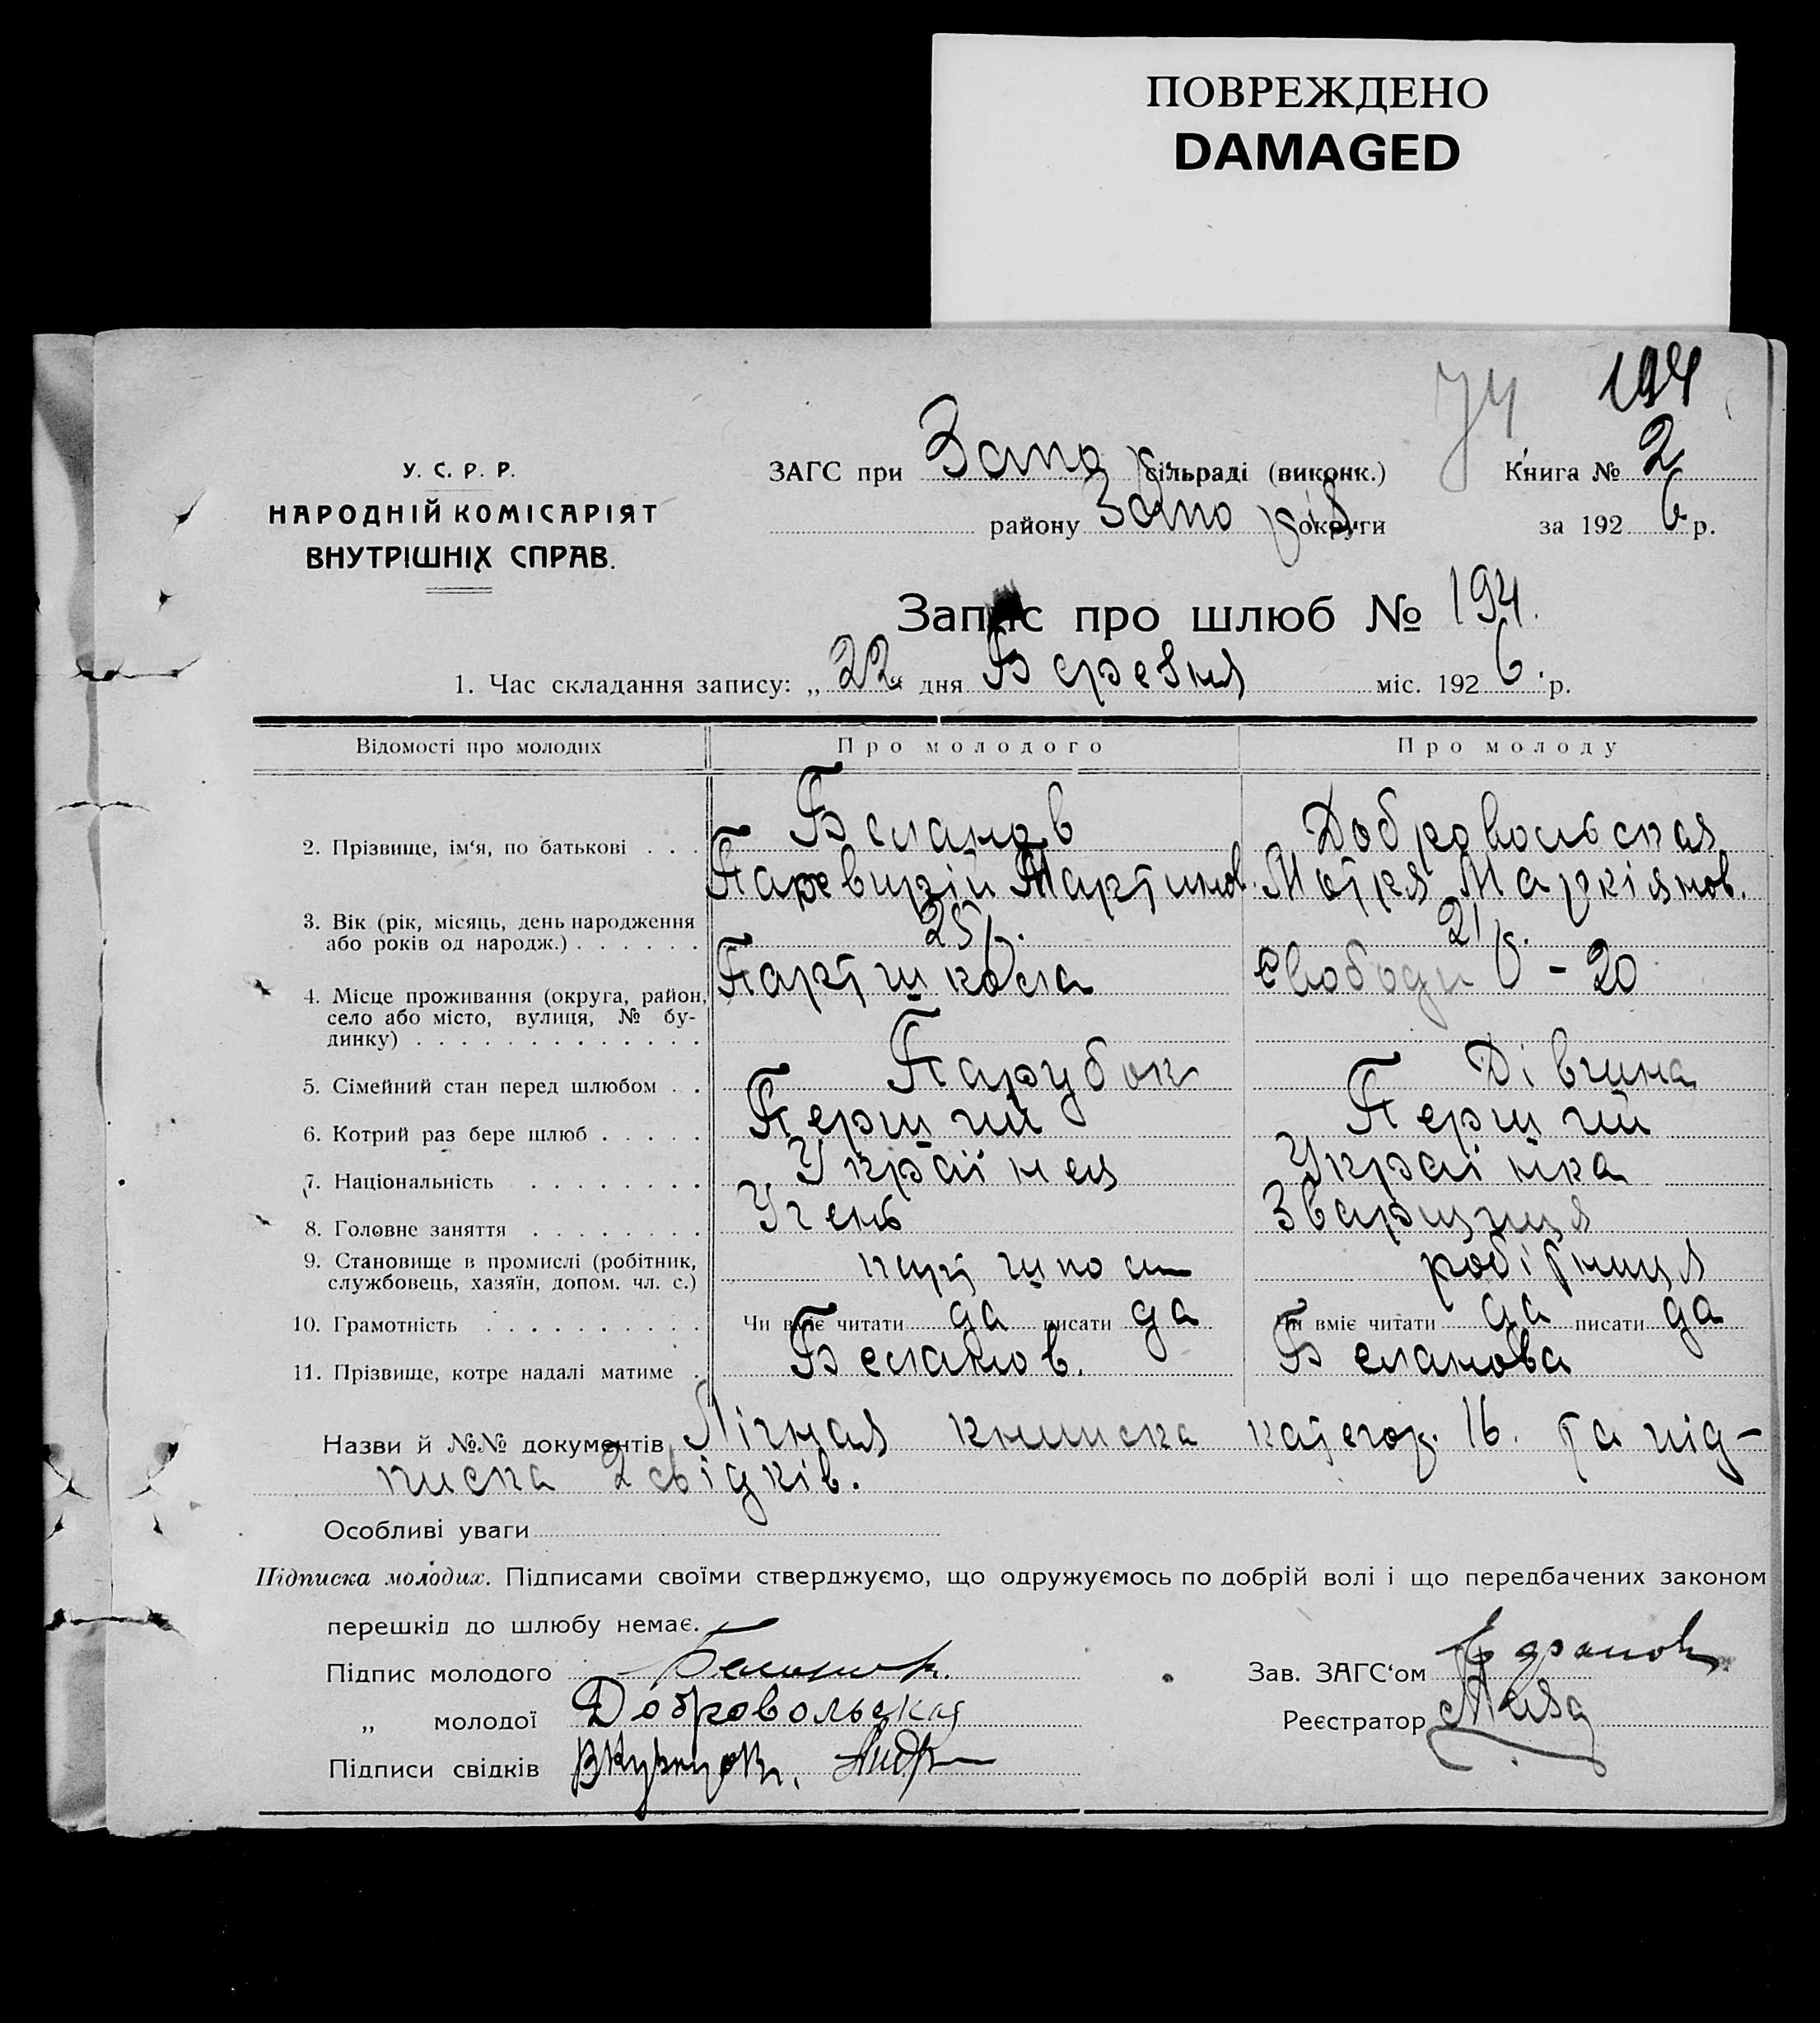 ПОВРЕЖДЕНО
DAMAGED
74 194
У. С. Р. Р.
НАРОДНІЙ КОМІСАРІЯТ
ВНУТРІШНІХ СПРАВ.
ЗАГС при Запор сільраді (виконк.) Книга № 2
району Запоріз округи за 1926 р.
Запис про шлюб № 194.
1. Час складання запису: „22" дня Березня міс. 1926 р.
Відомості про молодих Про молодого Про молоду
2. Прізвище, ім‘я, по батькові . . . Беланов Добровольская
Мартинов. Мотря Маркіянов.
3. Вік (рік, місяць, день народження або років од народж.) . . . . . . 25 р. 21 р.
4. Місце проживання (округа, район, село або місто, вулиця, № будинку) . . . . . . Партшкола Свободи - 20
5. Сімейний стан перед шлюбом . . . Парубок Дівчина
6. Котрий раз бере шлюб . . . . . Перший Перший
7. Національність . . . . . . . . Українец Українка
8. Головне заняття . . . . . . . Учень Зварщиця
9. Становище в промислі (робітник, службовець, хазяїн, допом. чл. с.) робітниця
10. Грамотність . . . . . . . . . . Чи вміє читати да писати да Чи вміє читати да писати да
11. Прізвище, котре надалі матиме . Беланов. Беланова
Назви й №№ документів Лічная книжка категор. 16. та під-
писка 2 свідків.
Особливі уваги
Підписка молодих. Підписами своїми стверджуємо, що одружуємось по добрій волі і що передбачених законом
перешкід до шлюбу немає.
Підпис молодого Беланов. Зав. ЗАГС‘ом
„ молодої Добровольская Реєстратор
Підписи свідків